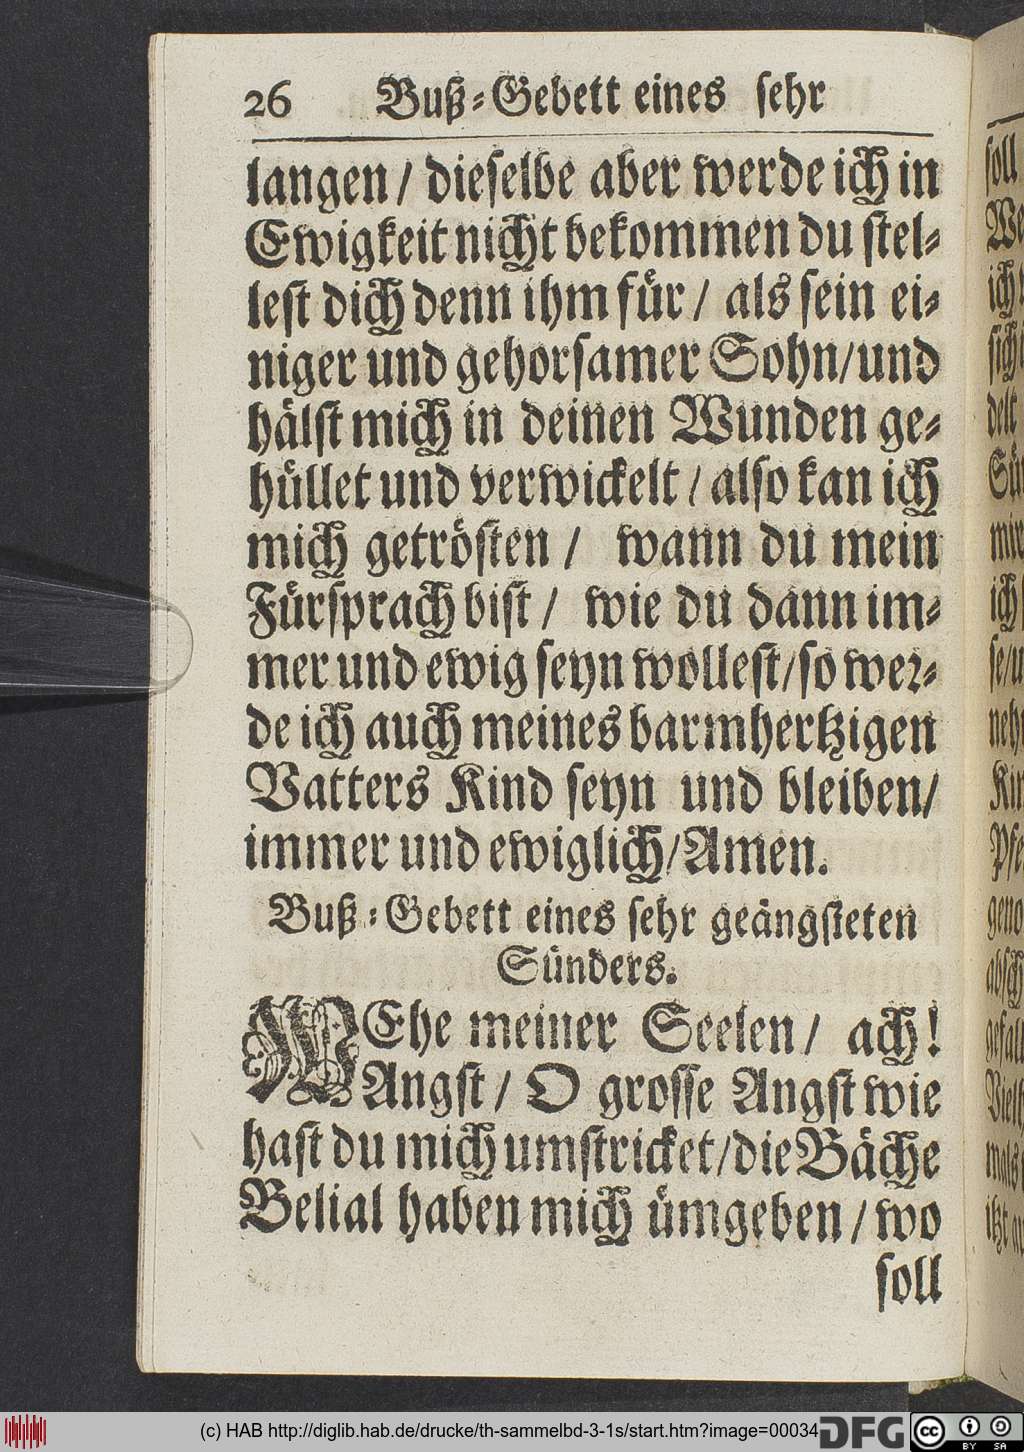 26 Buß-Gebett eines sehr
langen / dieselbe aber werde ich in
Ewigkeit nicht bekommen du stel-
lest dich denn ihm für / als sein ei-
niger und gehorsamer Sohn/und
hälst mich in deinen Wunden ge-
hüllet und verwickelt / also kan ich
mich getrösten / wann du mein
Fürsprach bist / wie du dann im-
mer und ewig seyn wollest/so wer-
de ich auch meines barmhertzigen
Vatters Kind seyn und bleiben/
immer und ewiglich/Amen.
Buß-Gebett eines sehr geängsteten
Sünders.
WEhe meiner Seelen / ach!
Angst / O grosse Angst wie
hast du mich umstricket/die Bäche
Belial haben mich ümgeben / wo
soll
soll
We
ich
sich
delt
Sün
mir
ich
se/u
neh
Kin
Pfe
geno
absch
gefall
Viel
mals
itzt
(c) HAB http://diglib.hab.de/drucke/th-sammelbd-3-1s/start.htm?image=00034
DFG
cc BY SA